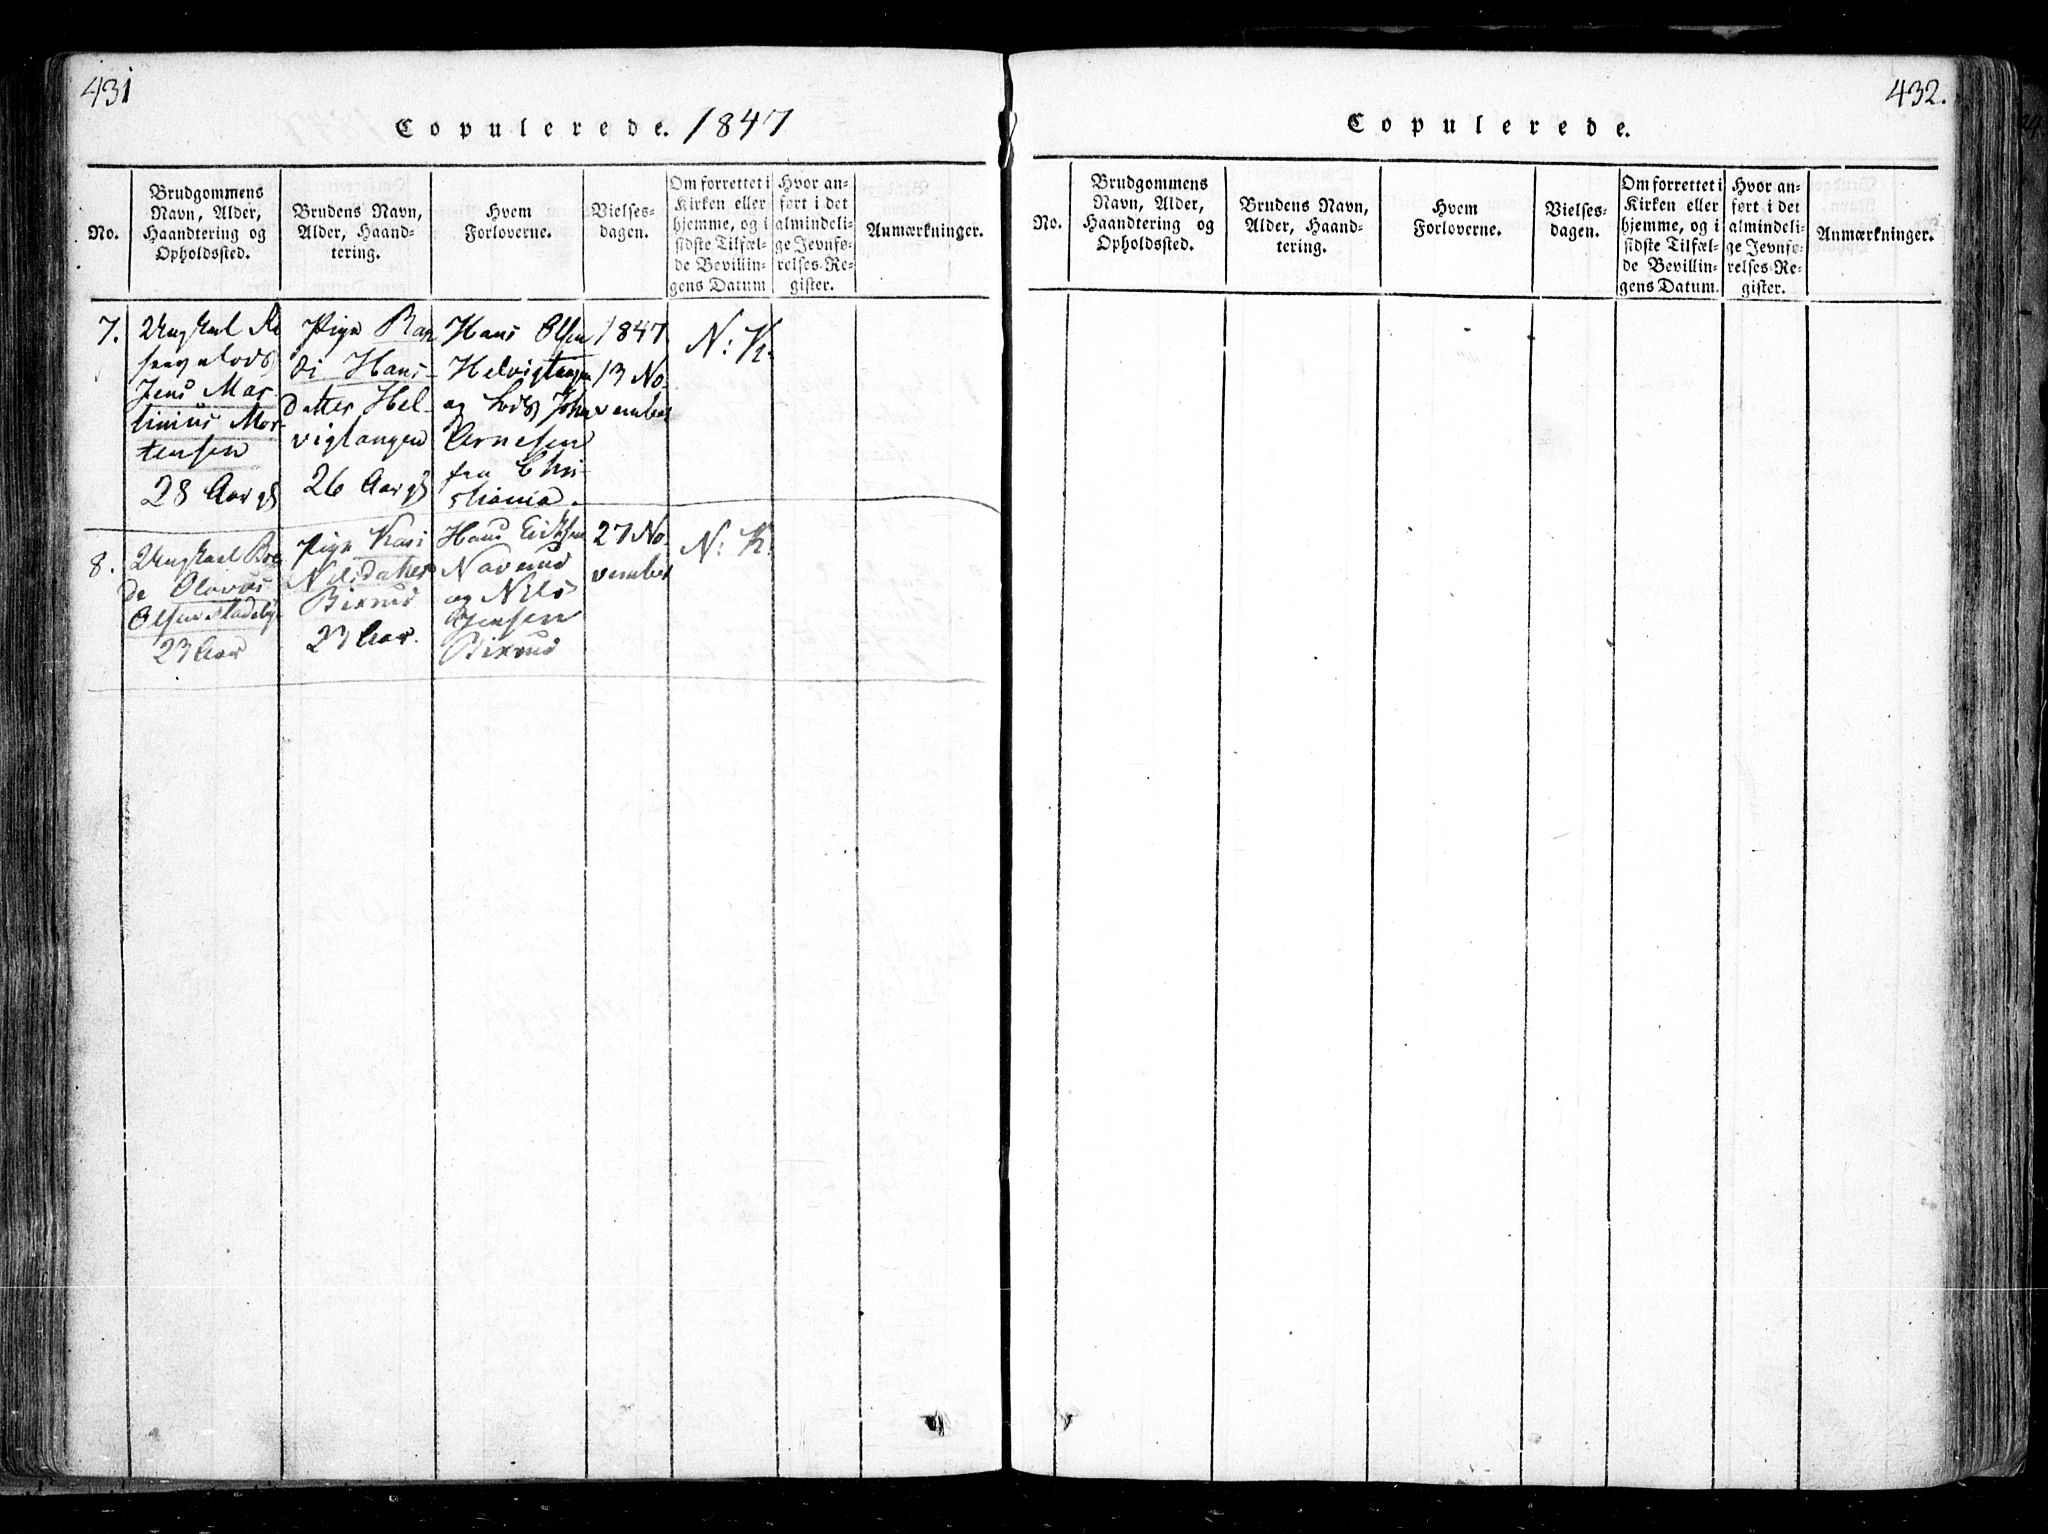 431
Copulerede. 1847
No.
Brudgommens
Navn, Alder,
Haandtering og
Opholdssted.
Brudens Navn,
Alder, Haand-
tering.
Hvem
Forloverne.
Vielses-
dagen.
Om forrettet i
Kirken eller
hjemme, og i
sidste Tilfæl-
de Bevillin-
gens Datum
Hvor an-
ført i det
almindeli-
ge Jevnfø-
relses-Re-
gister.
Anmærkninger.
7.
Ungkarl Re
servelods
Jens Mar-
tinius Mor-
tensen
28 Aar gl
Pige Ran
di Hans-
datter Hel-
vigtangen
26 Aar gl
Hans Olsen
Helvigtangen
og Lods John
Arnesen
fra Chri-
stiania.
1847
13 No-
vember
N: K.
8.
Ungkarl
de Olavus
Olsen
23 Aar
Pige Kari
Nilsdatter
Bixrud
23 Aar.
Hans Eriksen
Naverud
og Nils
Jensen
Bixrud
27 No
vember
N: K:
432.
Copulerede.
No.
Brudgommens
Navn, Alder,
Haandtering og
Opholdssted.
Brudens Navn,
Alder, Haand-
tering.
Hvem
Forloverne.
Vielses-
dagen.
Om forrettet i
Kirken eller
hjemme, og i
sidste Tilfæl-
de Bevillin-
gens Datum.
Hvor an-
ført i det
almindeli-
ge Jevnfø-
relses-Re-
gister.
Anmærkninger.